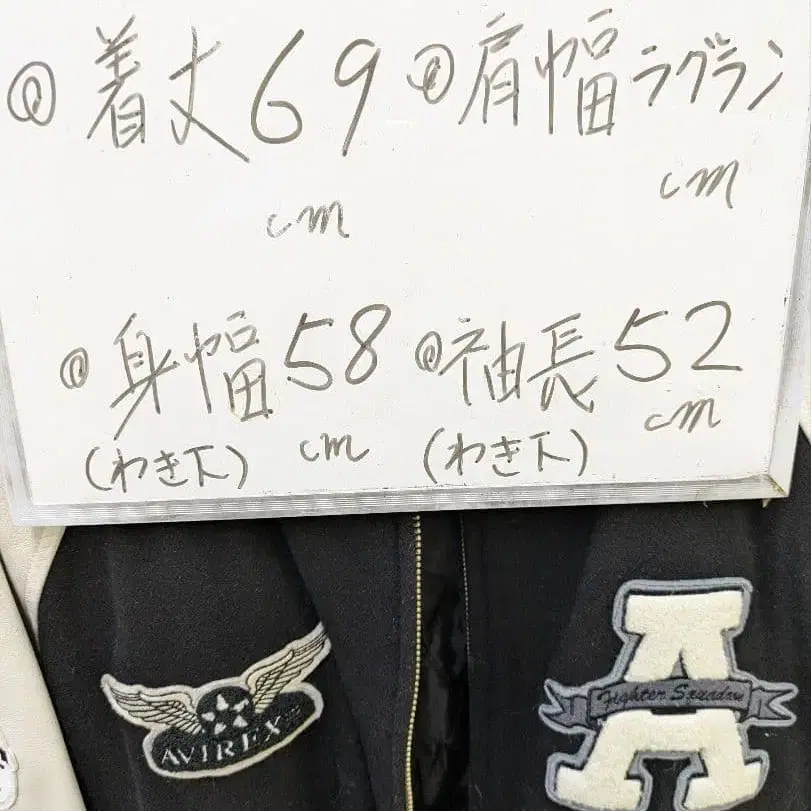 ①着丈69
cm
①肩幅ラグラン
cm
①身幅58
(わき下) cm
①袖長52
(わき下) cm
AVIREX
A
Fighter Squadron